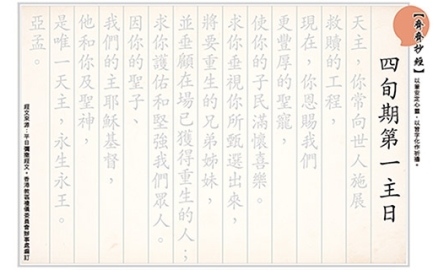 【齊齊抄經】
以筆墨定心靈，以習字化作祈禱。
四旬期第一主日
天主，你常向世人施展
救贖的工程，
現在，你恩賜我們
更豐厚的聖寵，
使你的子民滿懷喜樂。
求你垂視你所甄選出來，
將要重生的兄弟姊妹，
並垂顧在場已獲得重生的人；
求你護佑和堅強我們眾人。
因你的聖子、
我們的主耶穌基督，
他和你及聖神，
是唯一天主，永生永王。
亞孟。
經文來源：平日彌撒經文。香港教區禮儀委員會辦事處編訂